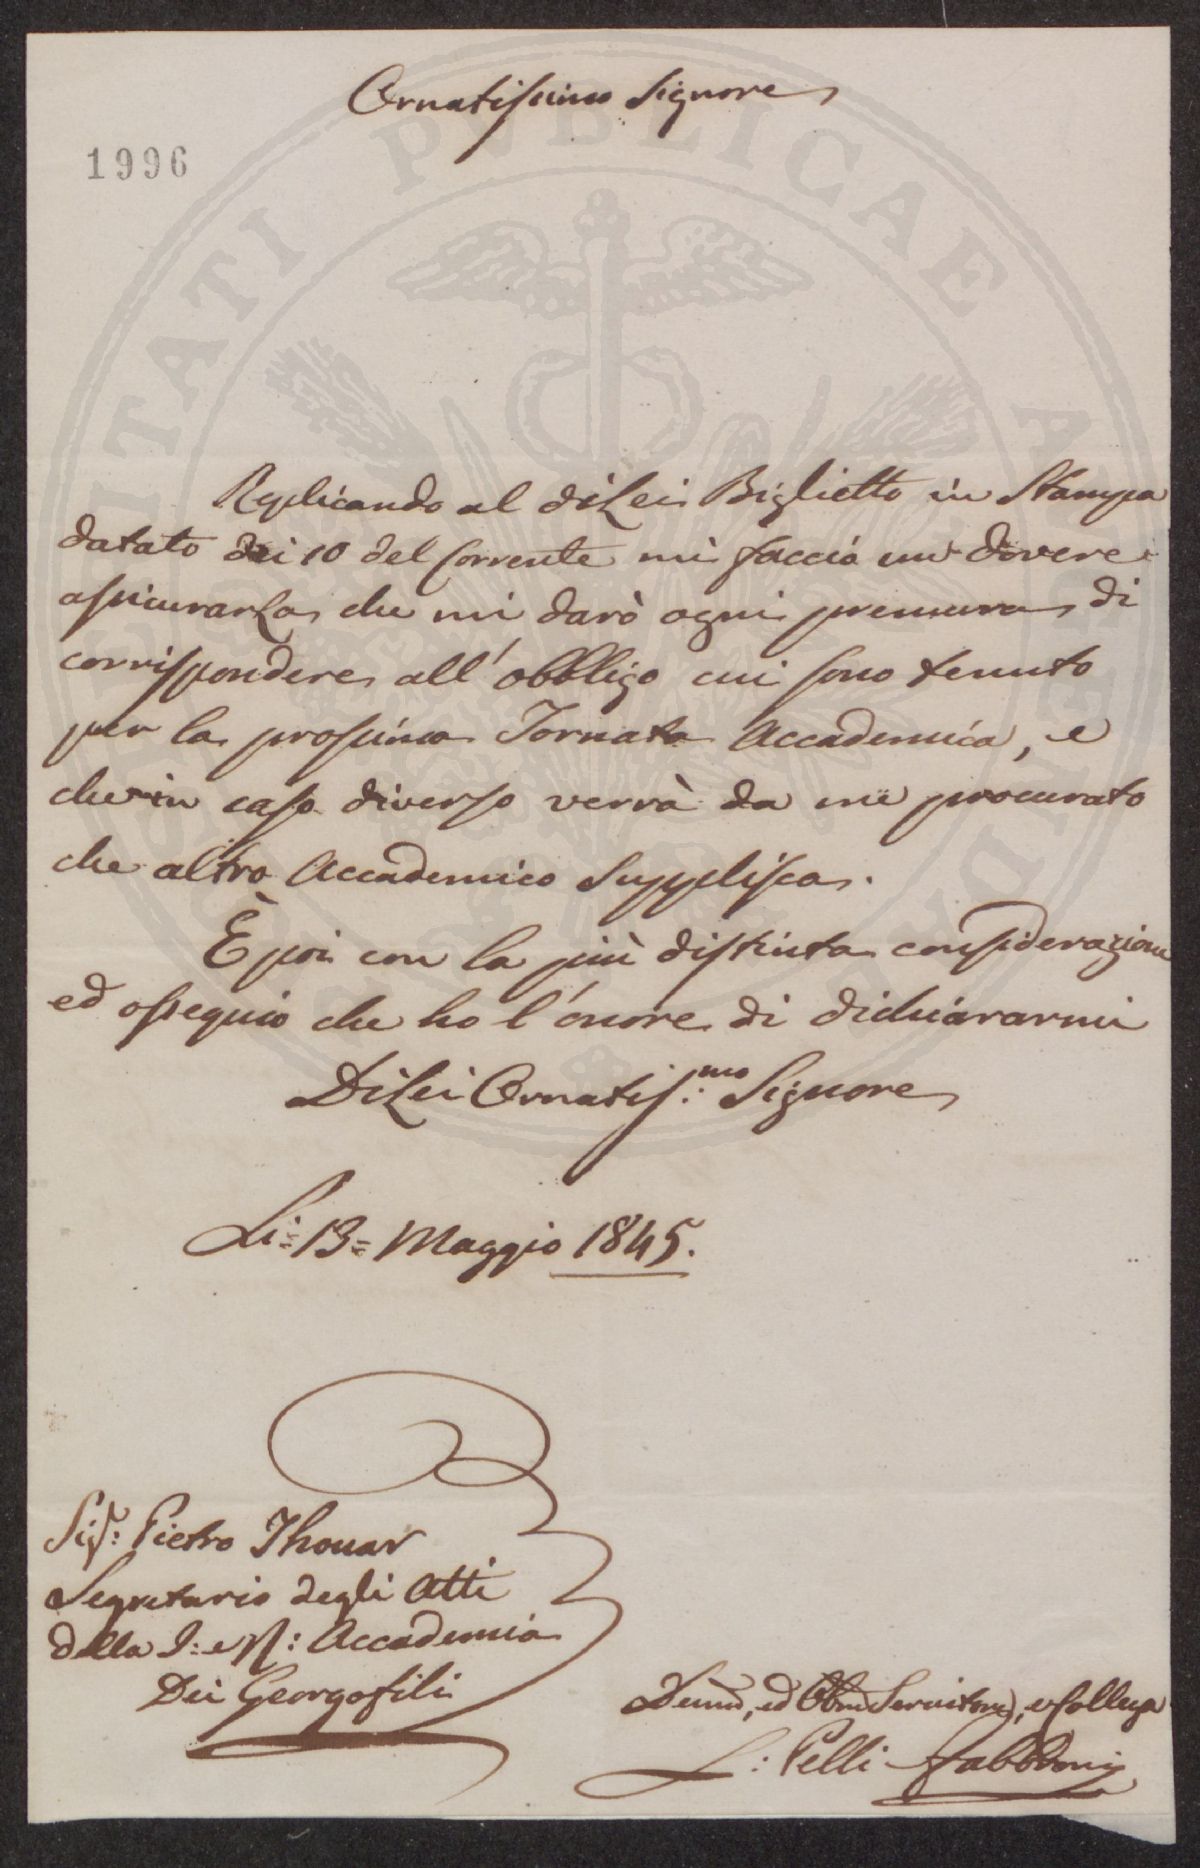 Ornatissimo Signore
1996
PVBLICAE
Replicando al di Lei Biglietto in Stampa
datato dei 10 del Corrente mi faccio un dovere
assicurarLa che mi darò ogni premura di
corrispondere all'obbligo cui sono tenuto
per la prossima Tornata Accademica, e
che in caso diverso verrà da me procurato
che altro Accademico Supplisca.
È poi con la più distinta considerazione
ed ossequio che ho l'onore di dichiararmi
Di Lei Ornatis:mo Signore
Li: 13= Maggio 1845.
Sig: Pietro Thouar
Segretario degli Atti
della I: e R: Accademia
Dei Georgofili
Devmo, ed Obbmo Servitore, e Collega
L: Pelli Fabbroni